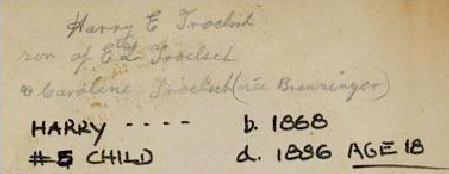 Harry E Troelsch
son of E L Troelsch
& Caroline Troelsch (née Breuninger)
HARRY - - - - b. 1868
#5 CHILD d. 1886 AGE 18